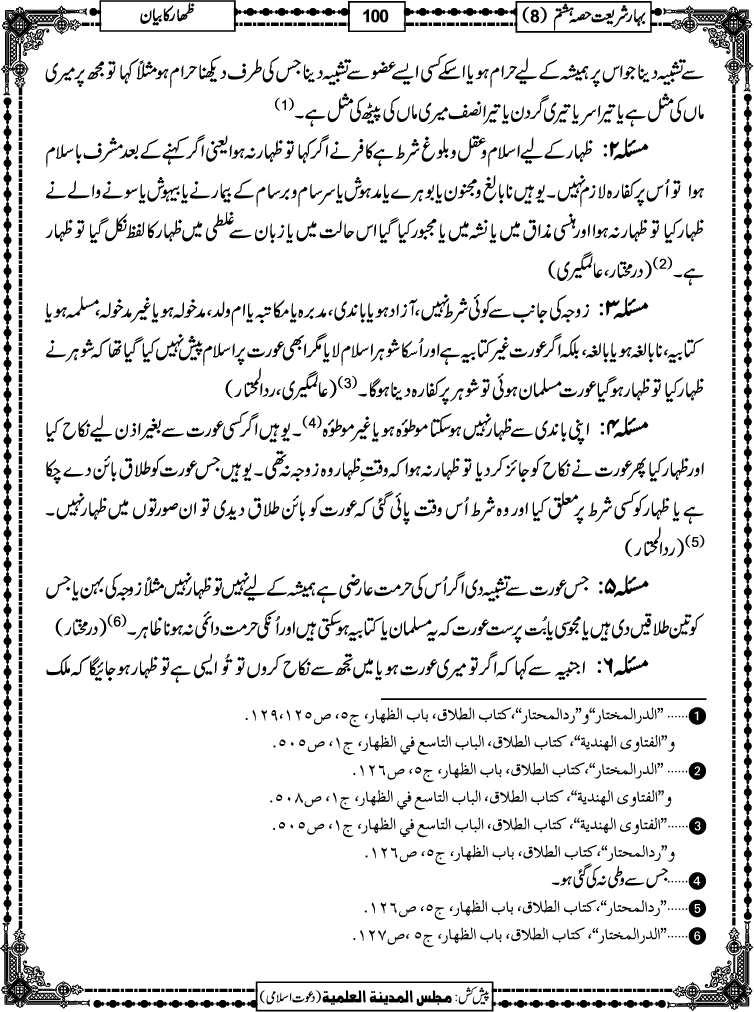 بہارِ شریعت حصہ ہشتم (8)
100
ظھار کا بیان
سے تشبیہ دینا جو اس پر ہمیشہ کے لیے حرام ہو یا اسکے کسی ایسے عضو سے تشبیہ دینا جس کی طرف دیکھنا حرام ہو مثلاً کہا تو مجھ پر میری
ماں کی مثل ہے یا تیرا سر یا تیری گردن یا تیرا نصف میری ماں کی پیٹھ کی مثل ہے۔ (1)
مسئلہ ۲: ظہار کے لیے اسلام و عقل و بلوغ شرط ہے کافر نے اگر کہا تو ظہار نہ ہوا یعنی اگر کہنے کے بعد مشرف باسلام
ہوا تو اُس پر کفارہ لازم نہیں۔ یوہیں نابالغ و مجنون یا بوہرے یا مدہوش یا سرسام و برسام کے بیمار نے یا بیہوش یا سونے والے نے
ظہار کیا تو ظہار نہ ہوا اور ہنسی مذاق میں یا نشہ میں یا مجبور کیا گیا اس حالت میں یا زبان سے غلطی میں ظہار کا لفظ نکل گیا تو ظہار
ہے۔ (2) (درمختار، عالمگیری)
مسئلہ ۳: زوجہ کی جانب سے کوئی شرط نہیں، آزاد ہو یا باندی، مدبرہ یا مکاتبہ یا ام ولد، مدخولہ ہو یا غیر مدخولہ، مسلمہ ہو یا
کتابیہ، نابالغہ ہو یا بالغہ، بلکہ اگر عورت غیر کتابیہ ہے اور اُسکا شوہر اسلام لایا مگر ابھی عورت پر اسلام پیش نہیں کیا گیا تھا کہ شوہر نے
ظہار کیا تو ظہار ہوگیا عورت مسلمان ہوئی تو شوہر پر کفارہ دینا ہوگا۔ (3) (عالمگیری، ردالمحتار)
مسئلہ ۴: اپنی باندی سے ظہار نہیں ہوسکتا موطؤہ ہو یا غیر موطؤہ (4)۔ یوہیں اگر کسی عورت سے بغیر اذن لیے نکاح کیا
اور ظہار کیا پھر عورت نے نکاح کو جائز کردیا تو ظہار نہ ہوا کہ وقتِ ظہار وہ زوجہ نہ تھی۔ یوہیں جس عورت کو طلاق بائن دے چکا
ہے یا ظہار کو کسی شرط پر معلق کیا اور وہ شرط اُس وقت پائی گئی کہ عورت کو بائن طلاق دیدی تو ان صورتوں میں ظہار نہیں۔
(5) (ردالمحتار)
مسئلہ ۵: جس عورت سے تشبیہ دی اگر اُس کی حرمت عارضی ہے ہمیشہ کے لیے نہیں تو ظہار نہیں مثلاً زوجہ کی بہن یا جس
کو تین طلاقیں دی ہیں یا مجوسی یا بُت پرست عورت کہ یہ مسلمان یا کتابیہ ہوسکتی ہیں اور اُنکی حرمت دائمی نہ ہونا ظاہر۔ (6) (درمختار)
مسئلہ ۶: اجنبیہ سے کہا کہ اگر تو میری عورت ہو یا میں تجھ سے نکاح کروں تو تُو ایسی ہے تو ظہار ہوجائیگا کہ ملک
1 ...... "الدرالمختار" و "ردالمحتار"، کتاب الطلاق، باب الظهار، ج٥، ص١٢٥،١٢٩.
و "الفتاوی الهندية"، کتاب الطلاق، الباب التاسع في الظهار، ج١، ص٥٠٥.
2 ...... "الدرالمختار"، کتاب الطلاق، باب الظهار، ج٥، ص١٢٦.
و "الفتاوی الهندية"، کتاب الطلاق، الباب التاسع في الظهار، ج١، ص٥٠٨.
3 ...... "الفتاوی الهندية"، کتاب الطلاق، الباب التاسع في الظهار، ج١، ص٥٠٥.
و "ردالمحتار"، کتاب الطلاق، باب الظهار، ج٥، ص١٢٦.
4 ...... جس سے وطی نہ کی گئی ہو۔
5 ...... "ردالمحتار"، کتاب الطلاق، باب الظهار، ج٥، ص١٢٦.
6 ...... "الدرالمختار"، کتاب الطلاق، باب الظهار، ج٥، ص١٢٧.
پیش کش: مجلس المدينة العلمية (دعوت اسلامی)